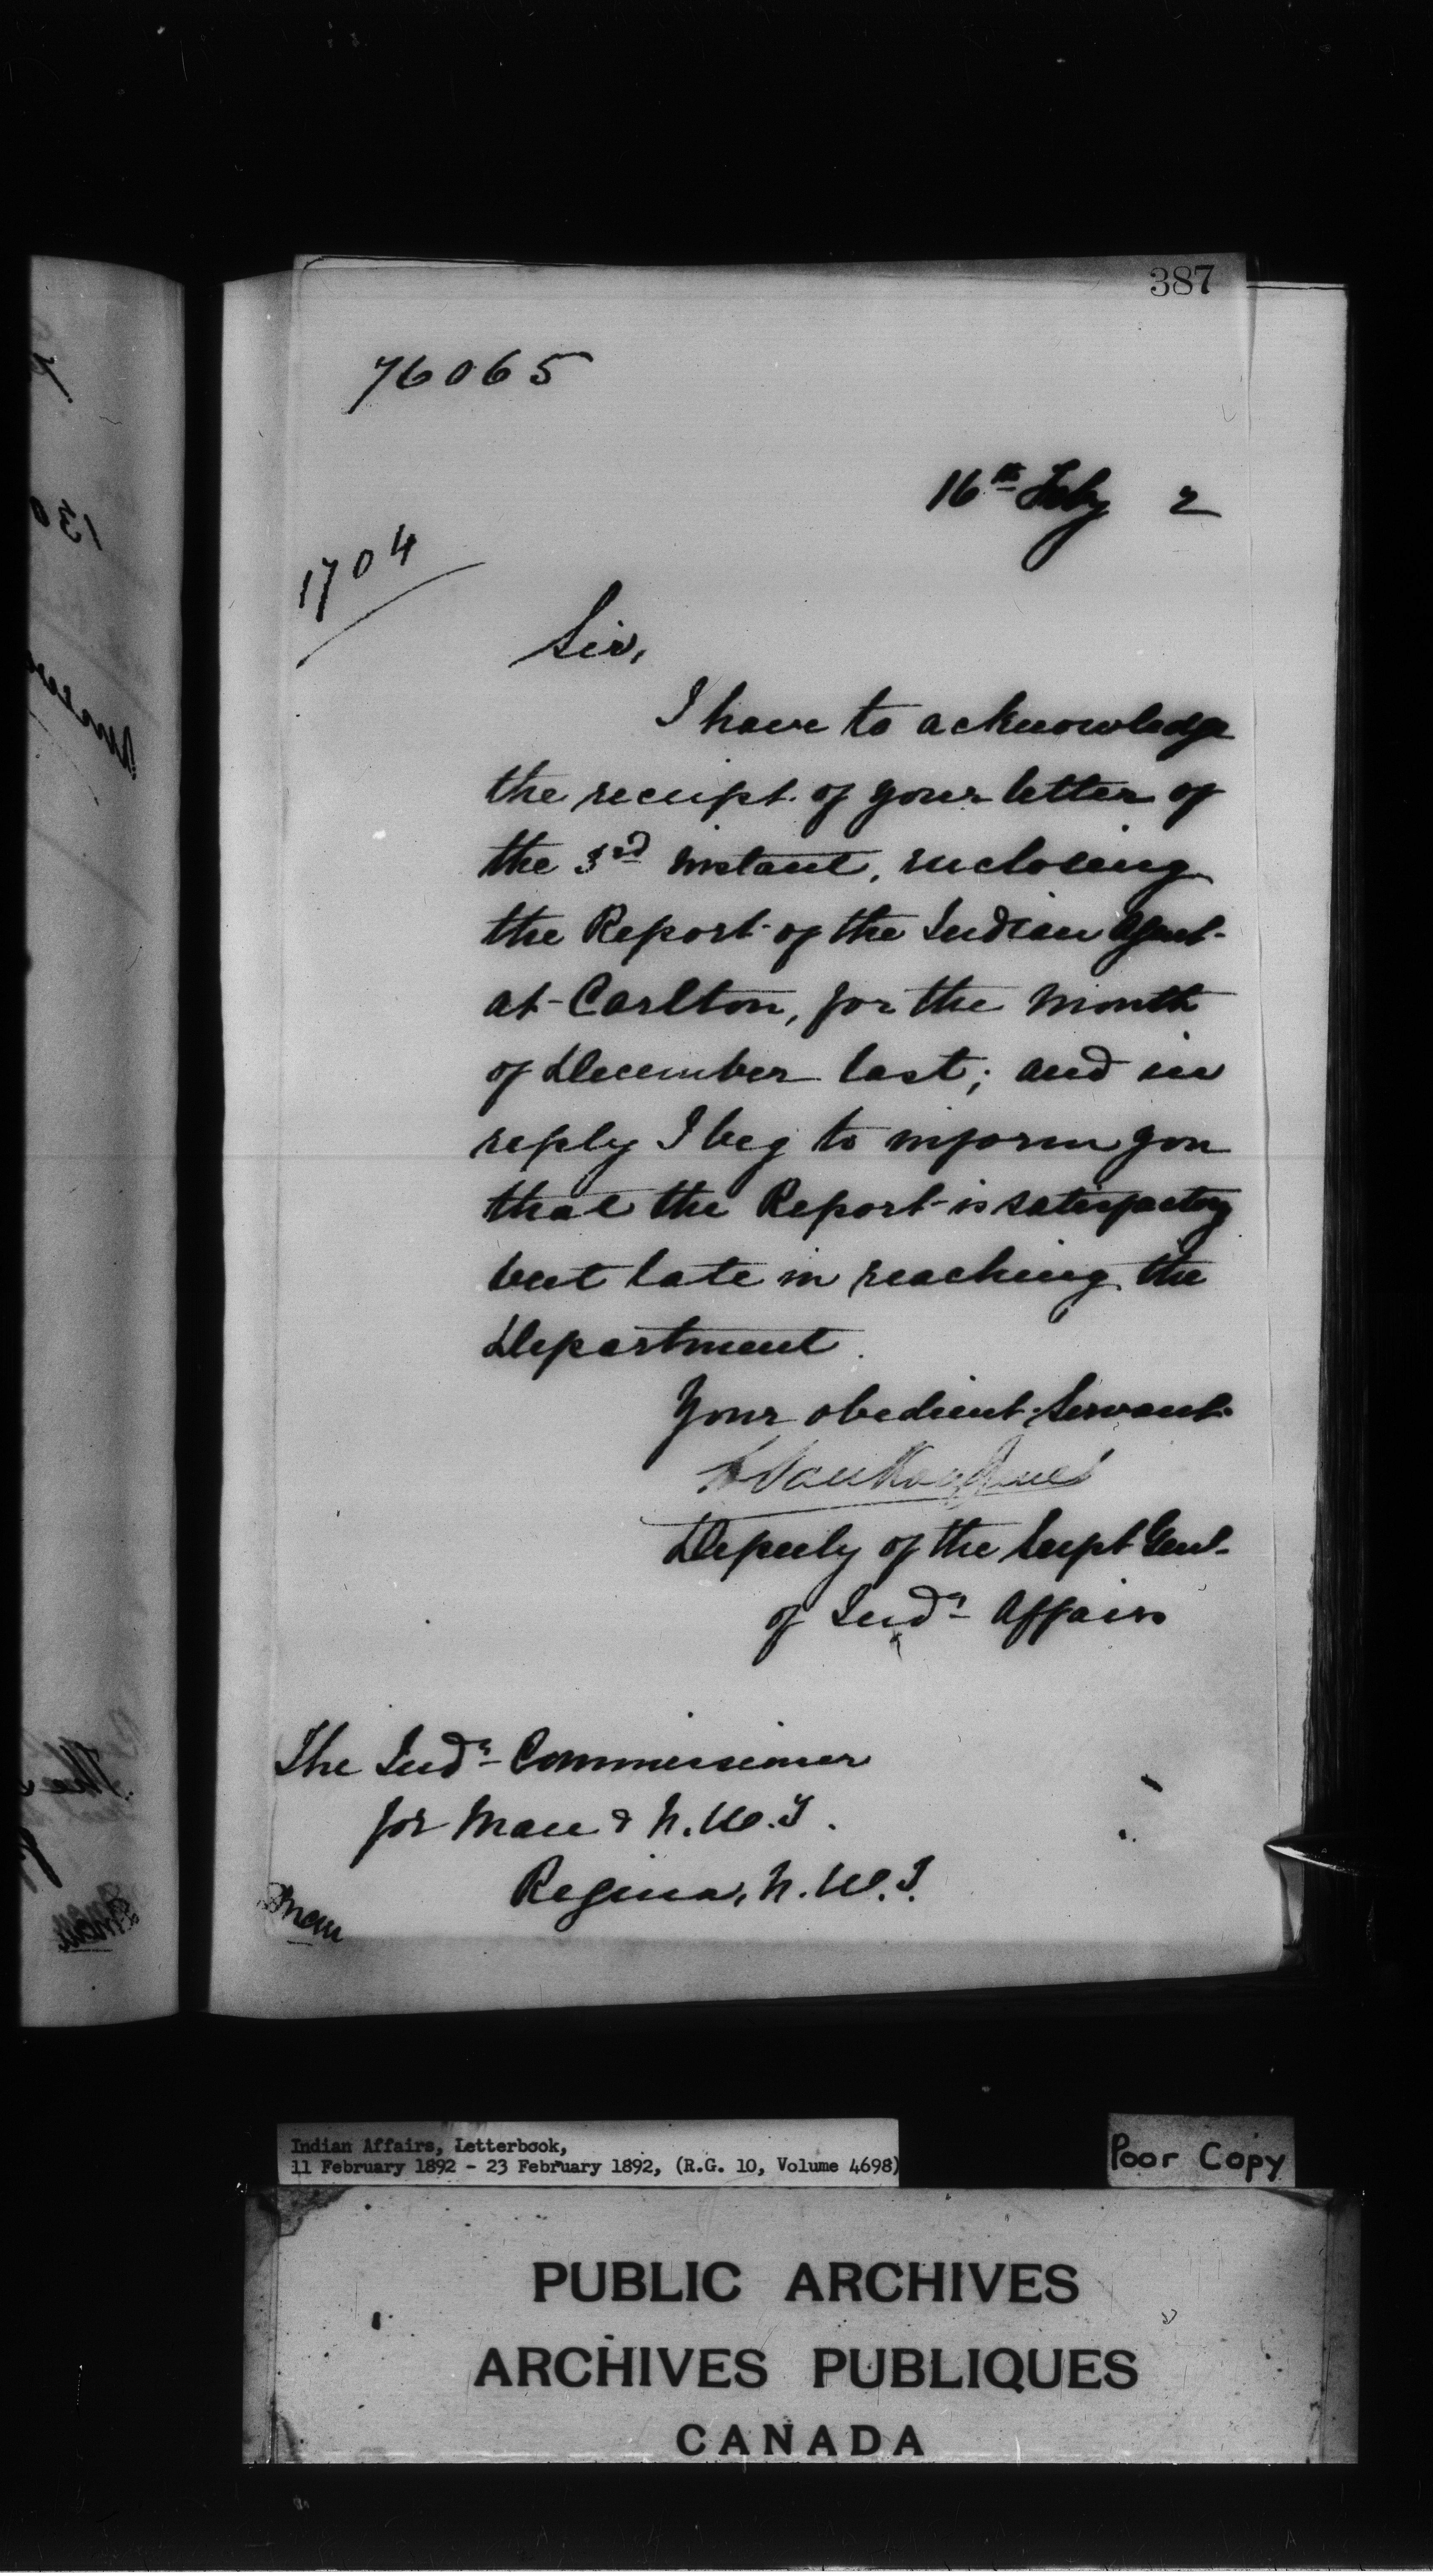 387
76065
16th Feby 2
1704
Sir,
I have to acknowledge
the receipt of your letter of
the 3rd instant, inclosing
the Report of the Indian Agent
at Carlton, for the month
of December last; and in
reply I beg to inform you
that the Report is satisfactory
but late in reaching the
Department.
Your obedient Servant
L Vankoughnet
Deputy of the Supt Genl
of Indn Affairs
The Indn Commissioner
for Man & N.W.T.
Regina, N.W.T.
Indian Affairs, Letterbook,
11 February 1892 - 23 February 1892, (R.G. 10, Volume 4698)
Poor Copy
PUBLIC ARCHIVES
ARCHIVES PUBLIQUES
CANADA